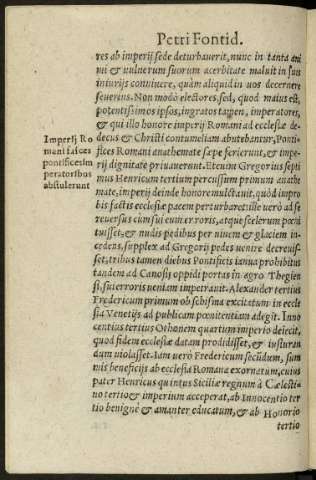 Petri Fontid.
res ab imperij sede deturbauerit, nunc in tanta ani
mi & vulnerum suorum acerbitate maluit in suis
iniurijs conniuere, quàm aliquid in uos decernere
seuerius. Non modò electores, sed, quod maius est,
potentissimos ipsos, ingratos tamen, imperatores,
& qui illo honore imperij Romani ad ecclesiæ de
decus & Christi contumeliam abutebantur, Ponti-
fices Romani anathemate sæpe ferierunt, & impe-
rij dignitate priuauerunt. Etenim Gregorius septi
mus Henricum tertium percussum primum anathe
mate, imperij deinde honore mulctauit, quòd impro
bis factis ecclesiæ pacem perturbaret: ille uerò ad se
reuersus cum sui eum erroris, atque scelerum pœni
tuisset, & nudis pedibus per niuem & glaciem in-
cedens, supplex ad Gregorij pedes uenire decreuis-
set, tribus tamen diebus Pontificis ianua prohibitus
tandem ad Canosij oppidi portas in agro Rhegien
si, sui erroris ueniam impetrauit. Alexander tertius
Fredericum primum ob schisma excitatum in eccle
sia Venetijs ad publicam pœnitentiam adegit. Inno
centius tertius Othonem quartum imperio deiecit,
quod fidem ecclesiæ datam prodidisset, & iusiuran
dum uiolasset. Iam uerò Fredericum secũdum, sum
mis beneficijs ab ecclesia Romana exornatum, cuius
pater Henricus quintus Siciliæ regnum à Cælesti-
no tertio & imperium acceperat, ab Innocentio ter
tio benignè & amanter educatum, & ab Honorio
tertio
Imperij Ro
mani fasces
pontifices im
peratoribus
abstulerunt